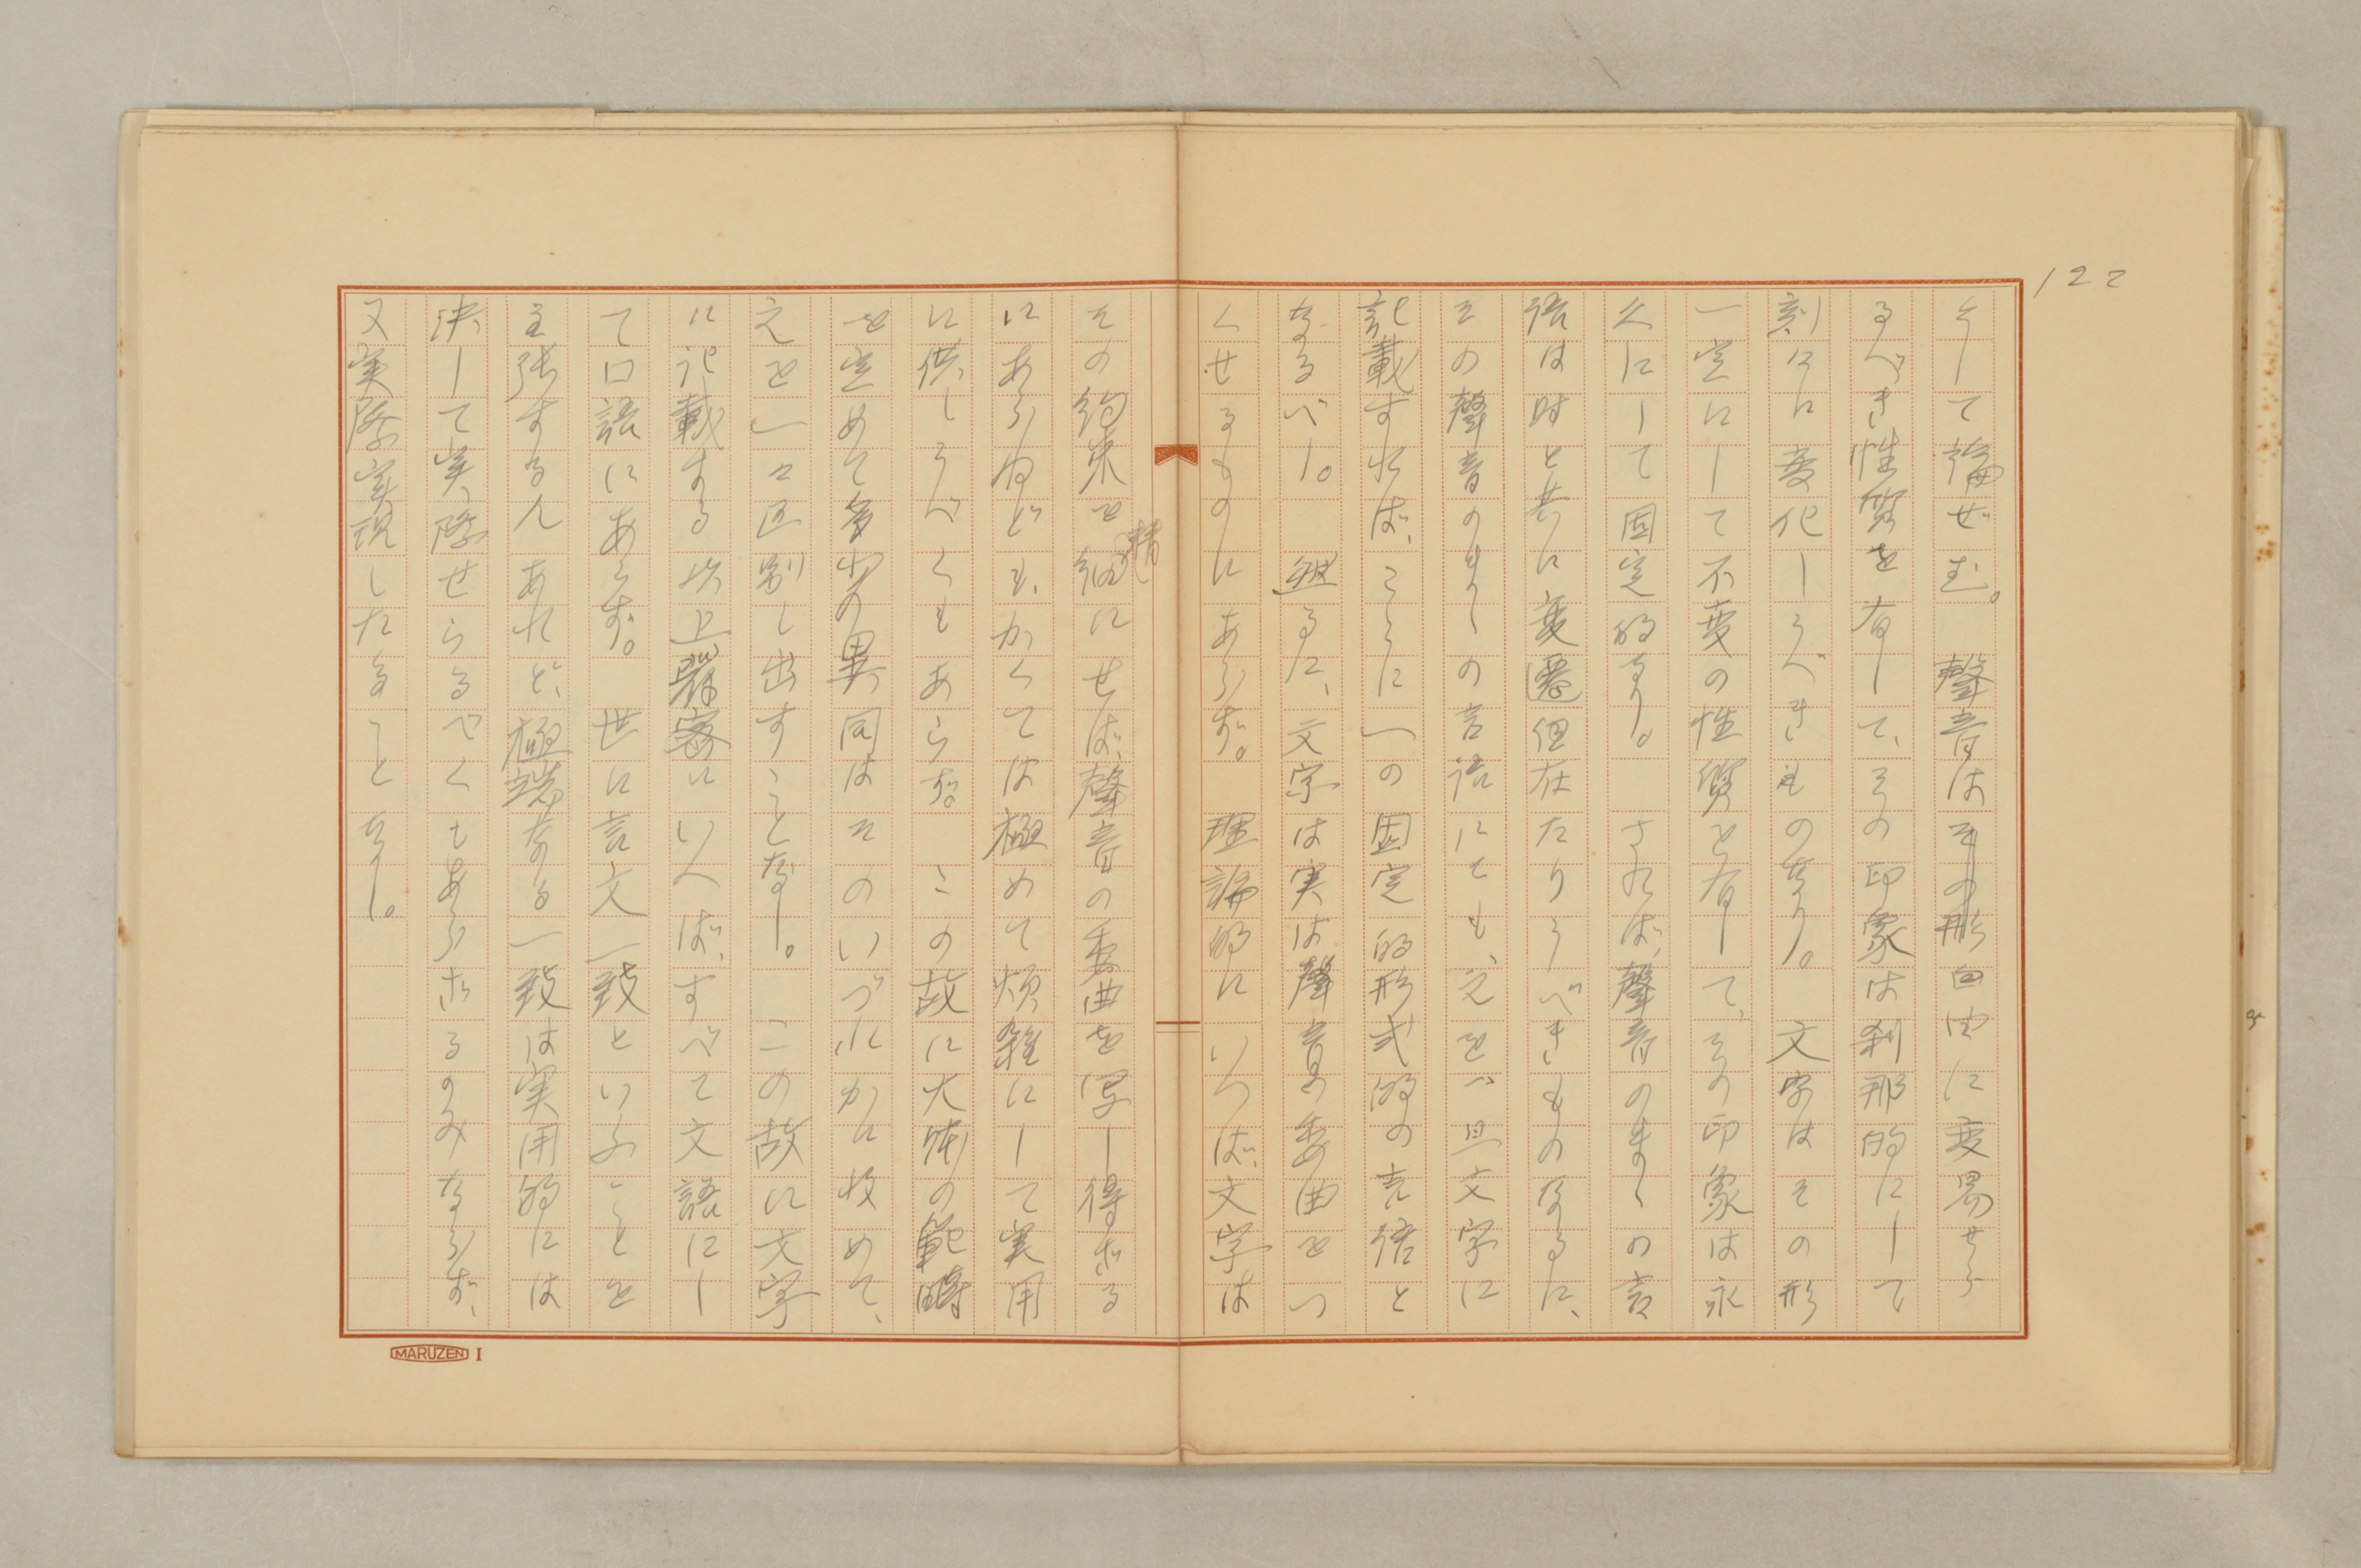 122
として論ぜむ。聲音はその形自由に変易せら
るべき性質を有して、その印象は刹那的にして
刻々に変化しうべきものなり。文字はその形
一定にして不変の性質を有して、その印象は永
久にして固定的なり。されば、聲音のまゝの言
語は時と共に変遷但在たりうべきものなるに、
その聲音のまゝの言語にても、之を一旦文字に
記載すれば、こゝに一の固定的形式的の言語と
なるべし。然るに、文字は実は聲音の委曲をつ
くせるものにあらず。理論的にいへば、文字は
その約束を精細にせば、聲音の委曲を写し得ざる
にあらねども、かくては極めて煩雑にして実用
に供しうべくもあらず。この故に大体の範疇
を定めて多少の異同はそのいづれかに収めて、
之を一々区別し出すことなし。この故に文字
に記載する以上嚴密にいへば、すべて文語にし
て口語にあらず。世に言文一致といふことを
主張する人あれど、極端なる一致は実用的には
決して実際せらるべくもあらざるのみならず、
又実際実現したることなし。
MARUZEN I